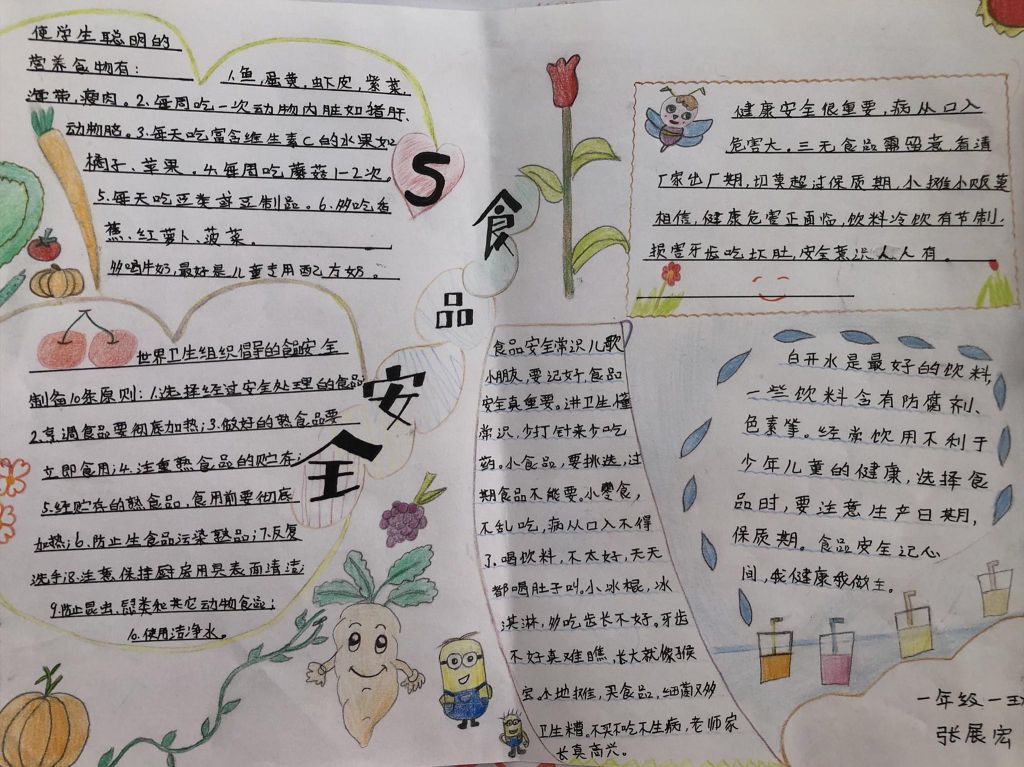 使学生聪明的
营养食物有:
1.鱼,蛋黄,虾皮,紫菜
海带,瘦肉。2.每周吃一次动物内脏如猪肝、
动物脑。3.每天吃富含维生素C的水果如
橘子、苹果。4.每周吃蘑菇1-2次。
5.每天吃豆类或豆制品。6.多吃香
蕉、红萝卜、菠菜。
多喝牛奶,最好是儿童专用配方奶。
世界卫生组织倡导的食品安全
制备10条原则:1.选择经过安全处理的食品
2.烹调食品要彻底加热;3.做好的熟食品要
立即食用;4.注重熟食品的贮存;
5.经贮存的熟食品,食用前要彻底
加热;6.防止生食品污染熟品;7.反复
洗手;8.注意保持厨房用具表面清洁
9.防止昆虫、鼠类和其它动物食品;
10.使用洁净水。
S
食
品
安
全
食品安全常识儿歌
小朋友,要记好,食品
安全真重要。讲卫生懂
常识,少打针来少吃
药。小食品,要挑选,过
期食品不能要。小零食,
不乱吃,病从口入不得
了。喝饮料,不太好,天天
都喝肚子叫。小冰棍,冰
淇淋,多吃齿长不好。牙齿
不好真难瞧,长大就像猴
宝。小地摊,买食品,细菌又多
卫生糟。不买不吃不生病,老师家
长真高兴。
健康安全很重要,病从口入
危害大。三无食品需留意,有清
厂家出厂期,切莫超过保质期,小摊小贩莫
相信,健康危害正面临,饮料冷饮有节制,
损害牙齿吃坏肚,安全意识人人有。
白开水是最好的饮料,
一些饮料含有防腐剂、
色素等。经常饮用不利于
少年儿童的健康,选择食
品时,要注意生产日期,
保质期。食品安全记心
间,我健康我做主。
一年级一班
张展宏